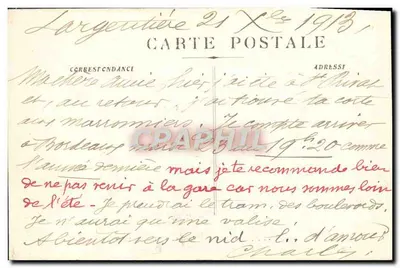 Largentière 21 Xbre 1913,
CARTE POSTALE
CORRESPONDANCE
ADRESSE
Ma chère amie, hier, j'ai été à St Privat
et, au retour, j'ai trouvé ta carte
aux marronniers. Je compte arriver
à Bordeaux 23 19h20 comme
l'année dernière mais je te recommande bien
de ne pas venir à la gare car nous sommes loin
de l'été - Je prendrai le tram des boulevards.
Je n'aurai qu'une valise.
A bientôt vers le nid d'amour
Charles
CPARAMA